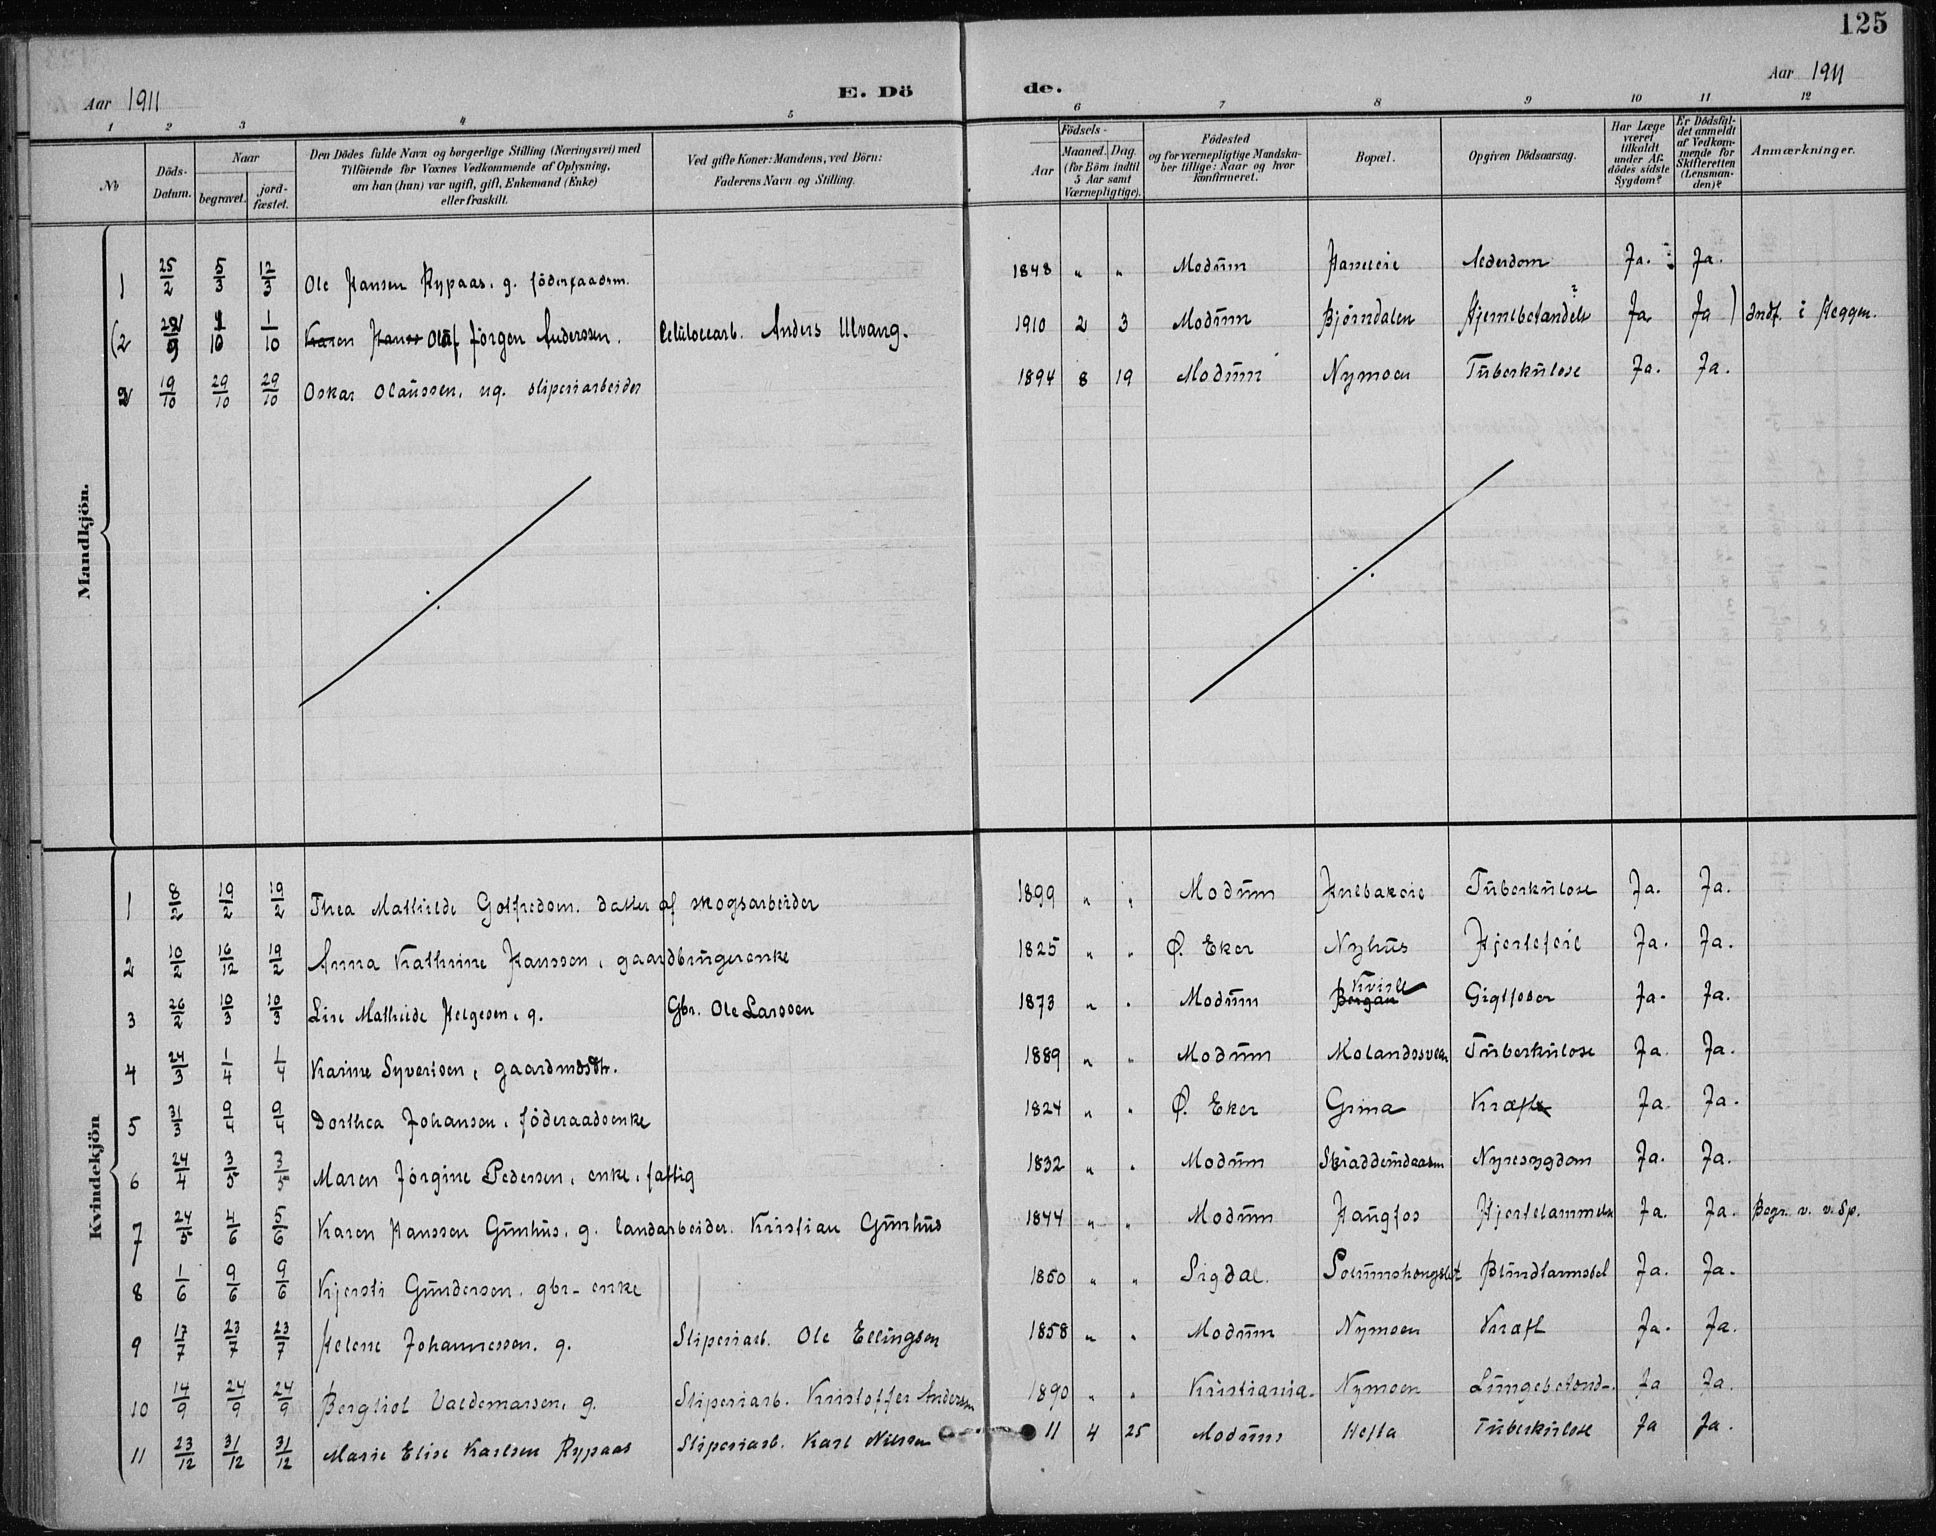 125
Aar 1911
E. Dö
de.
Aar 1911
1 2 3 4 5 6 7 8 9 10 11 12
No
Döds-Datum.
Naar
begravet.
jord-fæstet.
Den Dödes fulde Navn og borgerlige Stilling (Næringsvei) med
Tilföiende for Voxnes Vedkommende af Oplysning,
om han (hun) var ugift, gift, Enkemand (Enke)
eller fraskilt.
Ved gifte Koner: Mandens, ved Börn:
Faderens Navn og Stilling.
Födsels-
Aar
Maaned. Dag.
(for Börn indtil
5 Aar samt
Værnepligtige).
Födested
og for værnepligtige Mandska-
ber tillige: Naar og hvor
konfirmeret.
Bopæl.
Opgiven Dödsaarsag.
Har Læge
været
tilkaldt
under Af-
dödes sidste
Sygdom?
Er Dödsfal-
det anmeldt
af Vedkom-
mende for
Skifteretten
(Lensman-
den)?
Anmærkninger.
Mandkjön.
1 25/2 5/3 12/3 Ole Hansen Rypaas. g. föderaadsm. 1848 " " Modum Alderdom Ja. Ja.
(2 29/9 1/10 1/10 Olaf Jörgen Anderssen. Celulosearb. Anders Ulvang. 1910 2 3 Modum Bjørndalen Hjernebetændelse? Ja Ja ) Indf. i Heggen.
2 19/10 29/10 29/10 Oskar Olaussen, ug. sliperiarbeider 1894 8 19 Modum Nymoen Tuberkulose Ja. Ja.
Kvindekjön
1 8/2 19/2 19/2 Thea Mathilde Gotfredsen. datter af skogsarbeider 1899 " " Modum Tuberkulose Ja. Ja.
2 10/2 16/12 19/2 Anna Kathrine Hanssen, gaardbrugerenke 1825 " " Ø. Eker Nyhus Hjertefeil Ja. Ja.
3 26/2 10/3 10/3 Lise Mathilde Helgesen, g. Gbr. Ole Larssen 1873 " " Modum Bergan Kvisle Gigtfeber Ja. Ja.
4 24/3 1/4 1/4 Karine Syvertsen, gaardmdsdtr. 1889 " " Modum Tuberkulose Ja. Ja.
5 31/3 9/4 9/4 Dorthea Johansen, föderaadsenke 1824 " " Ø. Eker Grina Kræft Ja. Ja.
6 24/4 3/5 3/5 Maren Jörgine Pedersen, enke, fattig 1832 " " Modum Nyresygdom Ja. Ja.
7 24/5 4/6 5/6 Karen Hanssen Gunhus, g. landarbeider. Kristian Gunhus 1844 " " Modum Haugfos Hjertelammelse Ja. Ja. Begr. v. v. Sp.
8 1/6 9/6 9/6 Kjersti Gundersen, gbr-enke 1850 " " Sigdal. Blindtarmsbet Ja. Ja.
9 17/7 23/7 23/7 Helene Johannessen. g. Sliperiarb. Ole Ellingsen 1858 " " Modum Nymoen Kræft Ja. Ja.
10 14/9 24/9 24/9 Bergliot Valdemarsen, g. Sliperiarb. Kristoffer Andersen 1890 " " Kristiania. Nymoen Lungebetænd-. Ja Ja.
11 23/12 31/12 31/12 Marie Elise Karlsen Rypaas Sliperiarb. Karl Nilsen 11 4 25 Modum Hella Tuberkulose Ja Ja.